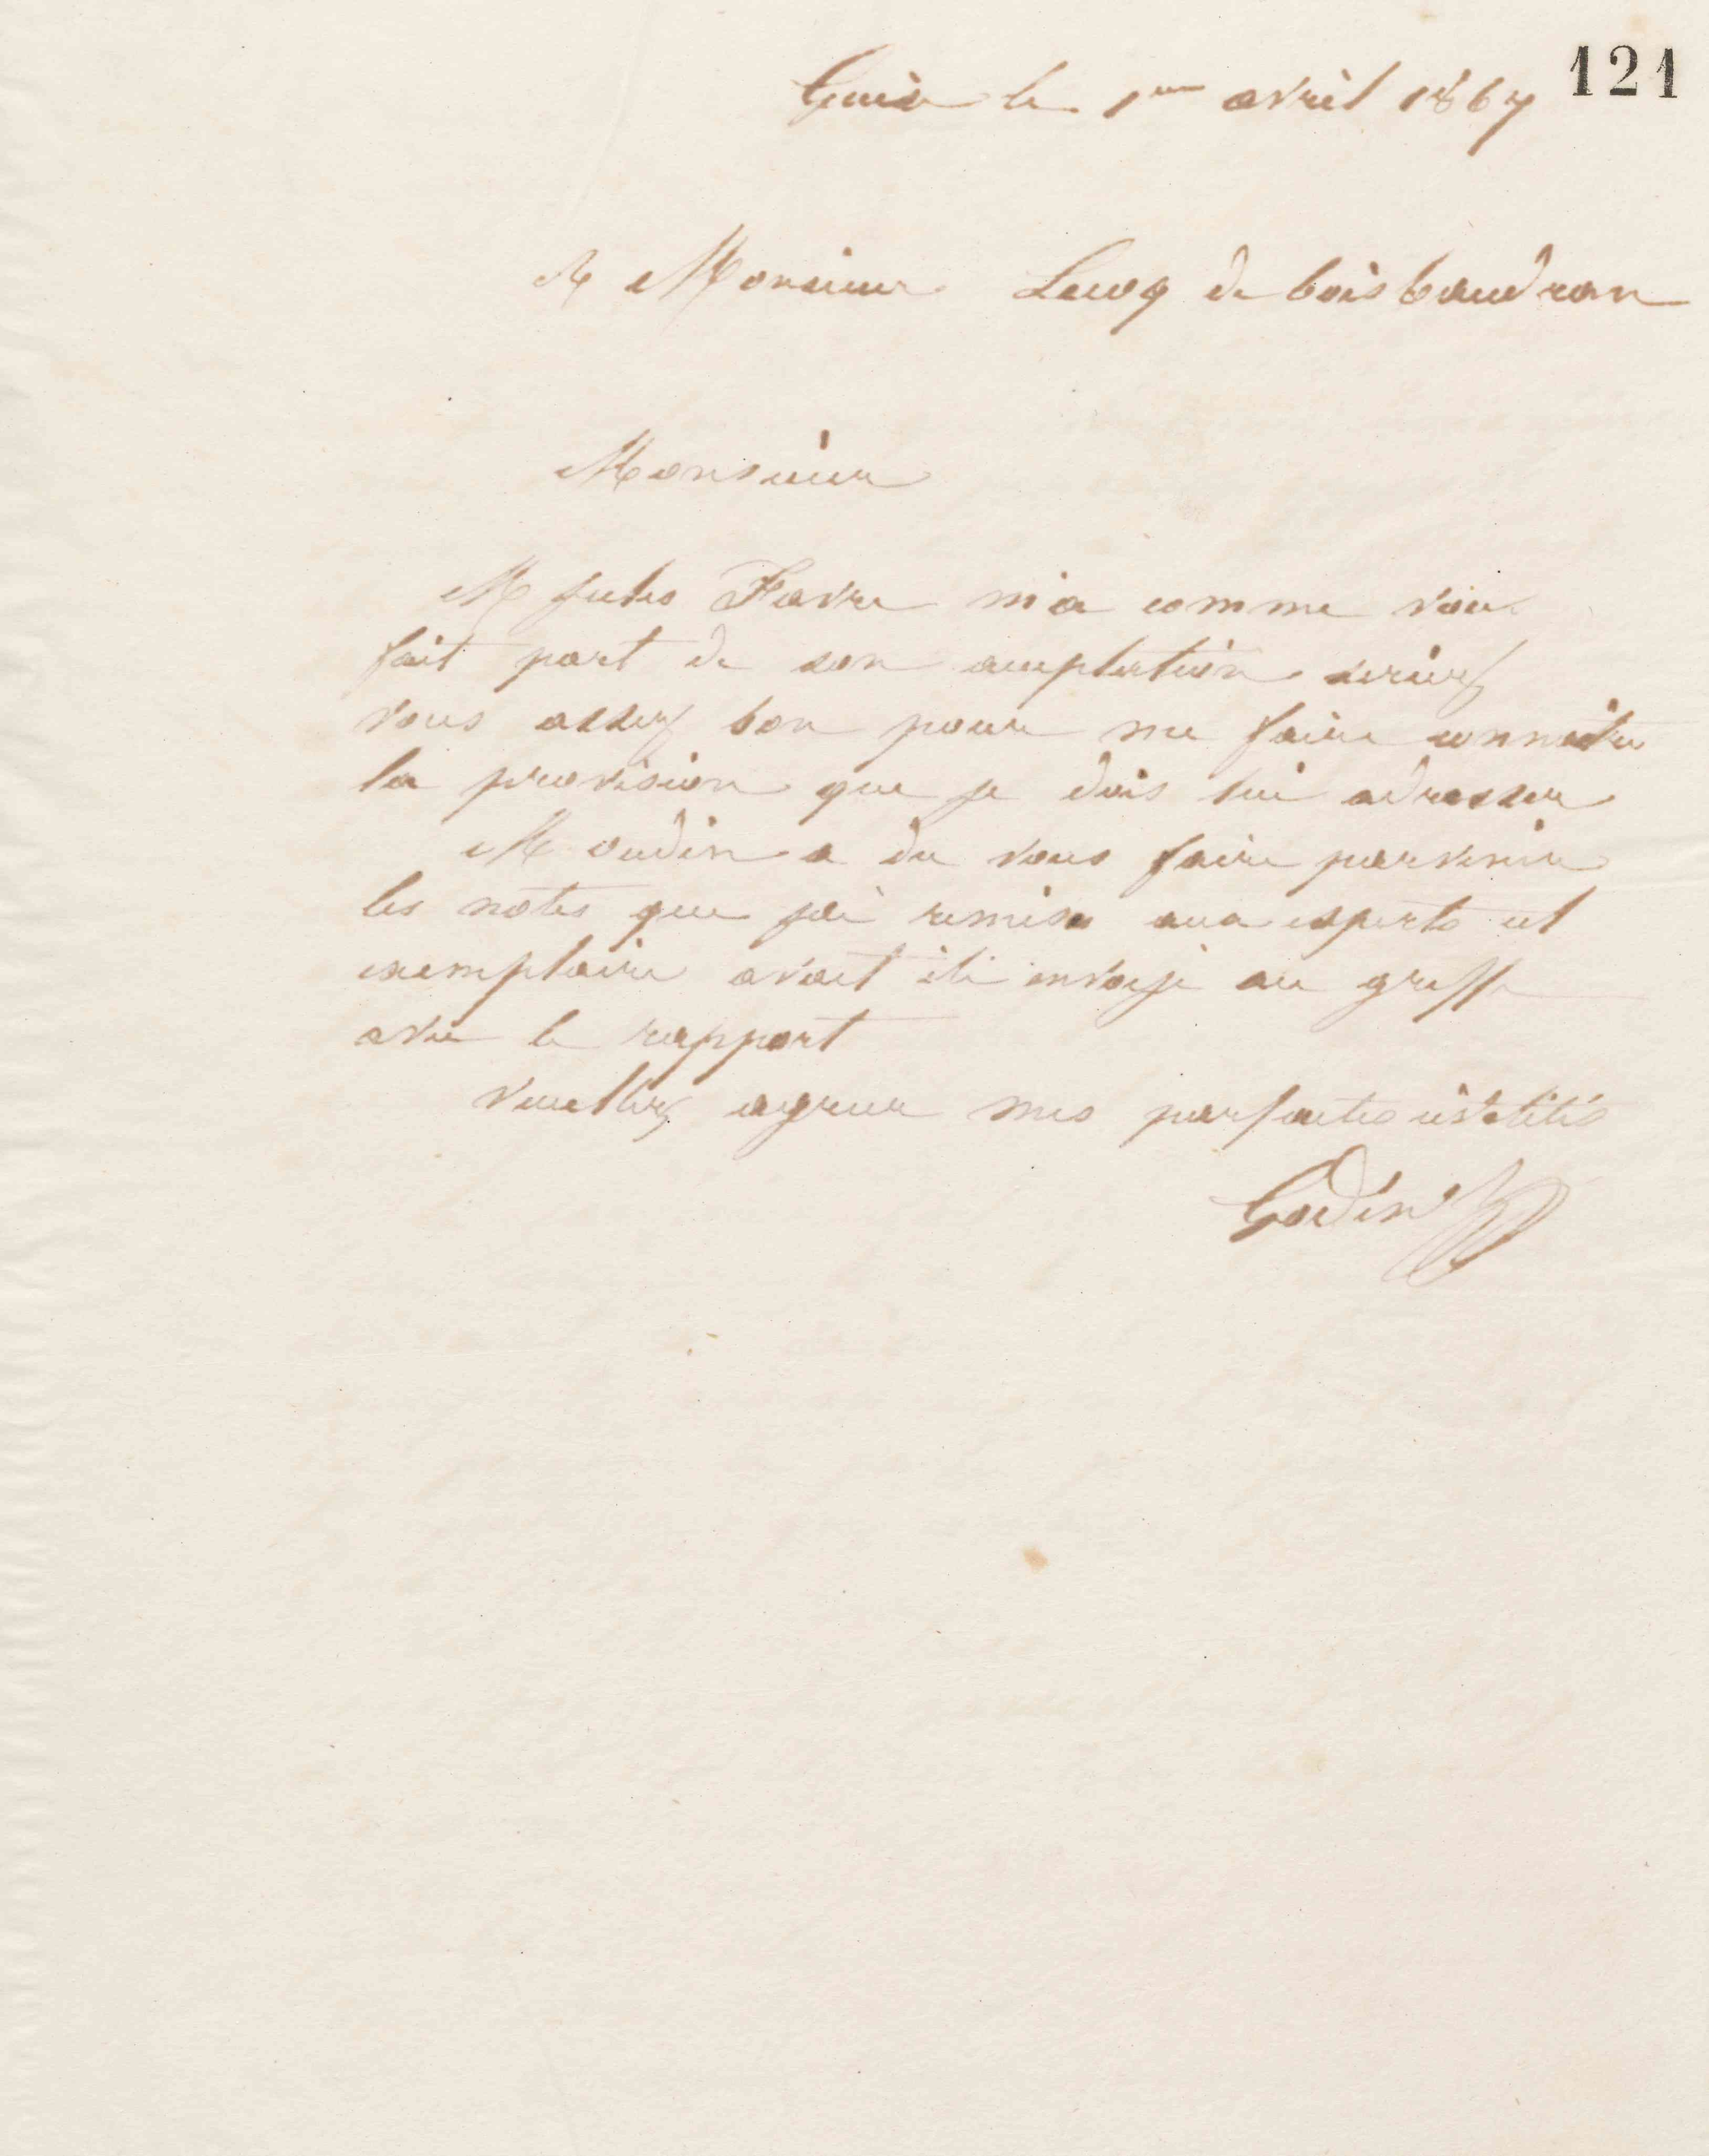 121
Guise le 1er avril 1867
A Monsieur Lecoq de boisbaudran
Monsieur
M Jules Favre m'a comme vous
fait part de son acceptation seriez
vous assez bon pour me faire connaitre
la provision que je dois lui adresser
M oudin a du vous faire parvenir
les notes que j'ai remises aux experts cet
exemplaire avait été envoyé au greffe
avec le rapport
veuillez agreer mes parfaites civilités
Godin